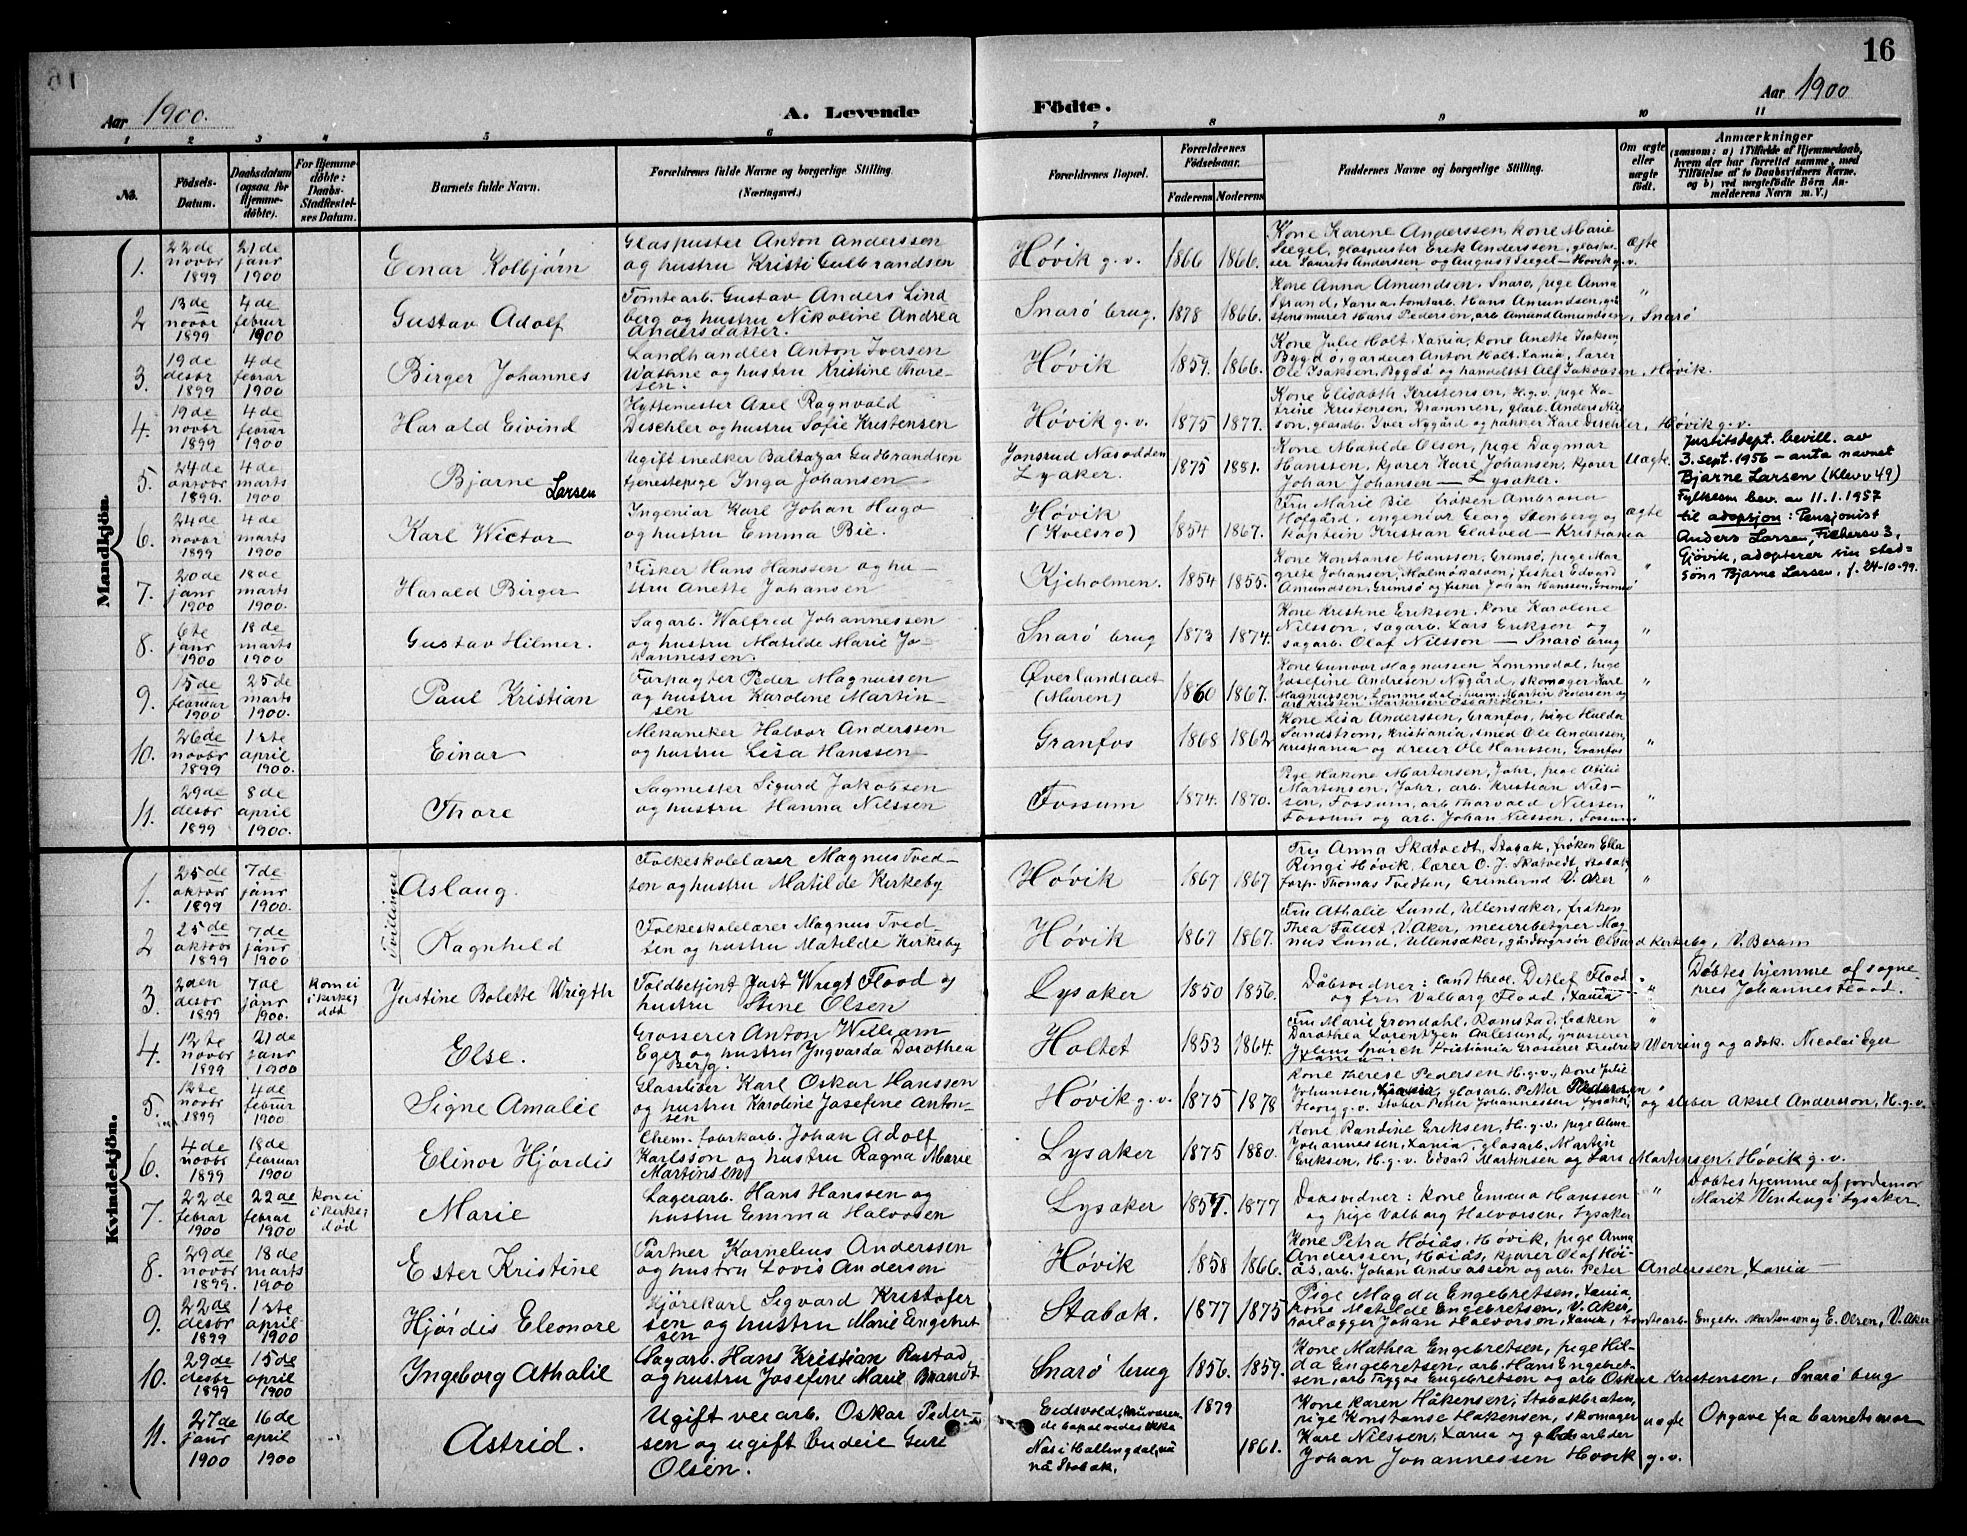 16
Aar 1900.
A. Levende
Födte.
Aar 1900
1 2 3 4 5 6 7 8 9 10 11
No.
Födsels-Datum.
Daabsdatum (ogsaa for Hjemmedöbte).
For Hjemmedöbte: Daabs-Stadfæstelses Datum.
Barnets fulde Navn.
Forældrenes fulde Navne og borgerlige Stilling. (Næringsvei.)
Forældrenes Bopæl.
Forældrenes Födselsaar.
Faderens Moderens
Faddernes Navne og borgerlige Stilling.
Om ægte eller uægte födt.
Anmærkninger
(saasom: a) i Tilfælde af Hjemmedaab, hvem der har forrettet samme, med Tilföielse af to Daabsvidners Navne, og b) ved uægtefödte Börn Anmelderens Navn m. V.)
Mandkjön.
1. 22de novbr 1899 21de janr 1900
Einar Kolbjörn
Glaspuster Anton Anderssen
og hustru Kristi Gulbrandsen
Høvik g. v. 1866 1866.
Kone Karine Anderssen, kone Marie
Siegel, glaspuster Erik Anderssen, glaspu-
ser Laurits Anderssen og August Siegel – Høvik g. v.
ægte
2 13de novbr 1899 4de februr 1900
Gustav Adolf
Tomtearb. Gustav Anders Lind
berg og hustru Nikoline Andrea
Andersdatter.
Snarö brug. 1878 1866.
Kone Anna Amundsen, Snarö, pige Anna
Strand, Xania, tomtarb. Hans Amundsen,
stensmurer Hans Pedersen, arb Amund Amundsen, Snarö
"
3. 19de desbr 1899 4de februar 1900
Birger Johannes
Landhandler Anton Iversen
Wathne og hustru Kristine Thore-
sen.
Høvik 1859. 1866.
Kone Julie Holt, Xania, kone Anette Isaksen
Bygdö, gardener Anton Holt, Xania, lærer
Ole Isaksen, Bygdö og handelsbt Alf Jakobsen, Høvik.
4. 19de novbr 1899 4de februar 1900
Harald Eivind
Hyttemester Axel Ragnvald
Dischler og hustru Sofie Kristensen
Høvik g. v. 1875 1877.
Kone Elisabeth Kristensen, H. g. v. pige Ka-
trine Kristensen, Drammen, glarb. Anders Nils
son, glasarb. Iver Nygård og pakker Karl Dischler, Høvik g. v.
5. 24de oktobr 1899. 4de marts 1900
Bjarne Larsen
Ugift snedker Baltazar Gudbrandsen
tjenestepige Inga Johansen
Jonsrud Næsodden
Lysaker. 1875 1881.
Kone Matilde Olsen, pige Dagmar
Hanssen, kjører Karl Johansen, kjører
Johan Johansen – Lysaker.
Uægte
Justitsdept. bevill. av
3. sept. 1956 – anta navnet
Bjarne Larsen (Klevv 49)
Fylkesm bev. av 11.1.1957
til adopsjon: Pensjonist
Anders Larsen,
Gjövik, adopterer sin sted-
sönn Bjarne Larsen, f. 24-10-99.
6. 24de novbr 1899 4de marts 1900
Karl Wictor
Ingeniør Karl Johan Hugo
og hustru Emma Bie.
Høvik
(Kvelsro) 1854 1867.
Fru Marie Bie fröken Ambrosia
Hofgård, ingeniør Georg Stenberg og
kaptein Kristian Glatved – Kristiania
ægte
7. 20de janr 1900 18de marts 1900.
Harald Birger
Fisker Hans Hanssen og hu-
stru Anette Johansen
Kjeholmen. 1854 1855.
Kone Konstanse Hanssen, Grimsö, pige Mar
grete Johansen, Malmökalven, fisker Edvard
Amundsen, Grimsö og fisker Johan Hanssen, Grimsö
"
8. 6te janr 1900 18de marts 1900
Gustav Hilmer.
Sagarb. Walfred Johannessen
og hustru Matilde Marie Jo-
hannessen.
Snarö brug 1873 1874.
Kone Kristine Eriksen, kone Karoline
Nilsson, sagarb. Lars Erikson og
sagarb. Olaf Nilsson – Snarö brug
"
9. 15de februar 1900 25de marts 1900.
Paul Kristian
Forpagter Peder Magnussen
og hustru Karoline Martin-
sen
Øverlandsæet
(Muren) 1860 1867.
Kone Gunvor Magnussen, Lommedal, pige
Josefine Andresen Nygård, skomager Karl
Magnussen, Lommedal, husm. Martin Pedersen og
arb Kristen Martensen
"
10. 26de novbr 1899 1ste april 1900.
Einar
Mekaniker Halvor Anderssen
og hustru Lisa Hanssen
Granfos 1868 1862
Kone Lisa Anderssen, Granfos, pige Hulda
Sundstrøm, Kristiania, smed Ole Anderssen,
Kristiania og dreier Ole Hanssen, Granfos
"
11. 29de desbr 1899 8de april 1900.
Thore
Sagmester Sigurd Jakobsen
og hustru Hanna Nilssen
Fossum 1874. 1870.
Pige Hakine Martensen, Jahr, pige Otilie
Martensen, Jahr, arb. Kristian Nils-
sen, Fossum, arb Thorvald Nilssen
Fossum og arb. Johan Nilssen, Fossum
"
Kvindekjön.
Tvillinger
1. 25de oktobr 1899 7de janr 1900.
Aslaug.
Folkeskolelærer Magnus Tved-
ten og hustru Matilde Kirkeby
Høvik 1867 1867
Fru Anna Skatvedt, Stabæk, fröken Ella
Ringi Høvik, lærer O. J. Skatvedt, Stabæk,
forp. Thomas Tvedten, Grimlund V. Aker
"
2 25de oktobr 1899 7de janr 1900.
Ragnhild
Folkeskolelærer Magnus Tved-
ten og hustru Matilde Kirkeby
Høvik 1867 1867.
Fru Athalie Lund, Ullensaker, fröken
Thea V. Aker, meieribestyrer Mag-
nus Lund, Ullensaker, gårdbrgrsön Olvard Kirkeby, V. Bærum
3 2den desbr 1899 7de janr 1900.
kom ei i kirke, död
Justine Bolette Wrigth
Toldbetjent Just Wregt Flood og
hustru Stine Olsen
Lysaker 1850 1856.
Dåbsvidner: cand theol. Detlef Flood
og fru Valborg Flood, Xania
"
Döbtes hjemme af sogne-
pres Johannes Flood.
4. 12te novbr 1899 21de janr 1900
Else.
Grosserer Anton William
Eger og hustru Ingvarda Dorothea
Berg.
Holtet 1853 1864.
Fru Marie Gröndahl, Ramstad, fröken
Dorothea Lorentzen Aalesund, grosserer
Julius Sparch Kristiania Grosserer Fredrik Werring og adok. Nicolai Eger
Xania
"
5. 12te novbr 1899 4de februr 1900
Signe Amalie
Glassliber Karl Oskar Hanssen
og hustru Karoline Josefine Anton-
sen
Høvik g. v. 1875 1878
Kone Therese Pedersen H. g. v., kone Julie
Johansen, glasarb. Petter Pedersen
Høvig g. v. sliber Petter Johannessen Lysaker, og sliber Aksel Andersson, H. g. v.
"
6. 4de novbr 1899 18de februar 1900
Elinor Hjördis
Chem. fabrkarb. Johan Adolf
Karlsson og hustru Ragna Marie
Martinsen
Lysaker 1875 1880.
Kone Randine Eriksen, H. g. v. pige Alma
Johannessen, Xania, glasarb. Martin
Eriksen, H. g. v. Edvard Martensen og Lars Martensen, Høvik g. v.
7. 22de februar 1900 22de februar 1900
kom ei i kirke, död
Marie
Lagerarb. Hans Hanssen og
hustru Emma Halvorsen
Lysaker 1857. 1877
Dåbsvidner: kone Emma Hanssen
og pige Valborg Halvorsen, Lysaker
"
Döbtes hjemme af jordemor
Marit Vindingi Lysaker.
8. 29de novbr 1899. 18de marts 1900
Ester Kristine
Partner Kornelius Anderssen
og hustru Lovis Andersen
Høvik 1858 1866.
Kone Petra Høiås, Høvik, pige Anna
Anderssen, Høiås, kjører Olaf Høi-
ås, arb. Johan Andreassen og arb. Peter Anderssen, Xania
9. 22de desbr 1899 1ste april 1900
Hjördis Eleonore
Kjörekarl Sigvard Kristofer
sen og hustru Marie Engebret
sen
Stabæk. 1877 1875
Pige Magda Engebretsen, Xania,
kone Matilde Engebretsen, V. Aker,
Johan Halvorsen, Xania, tomtearb. Engebr. Martensen og E. Olsen, V. Aker
10. 29de desbr 1899 15de april 1900
Ingeborg Athalie
Sagarb. Hans Kristian Rustad
og hustru Josefine Marie Brandt
Snarö brug 1856. 1859.
Kone Mathea Engebretsen, pige Hil-
da Engebretsen, arb. Hans Engebret-
sen, arb Trygve Engebretsen og arb Oskar Kristensen, Snarö brug
11. 27de janr 1900 16de april 1900
Astrid.
Ugift veiarb. Oskar Peder-
sen og ugift Budeie Guri
Olsen.
Eidsvold, nuværen-
de bopæl vides ikke
Næs i Hallingdal, nu
på Stabæk.
1879 1861.
Kone Karen Håkensen, Stabækbråten,
pige Konstanse Håkensen, skomager
Karl Nilssen, Xania og glasarbeider
Johan Johannessen Høvik g. v.
uægte
Opgave fra barnets mor